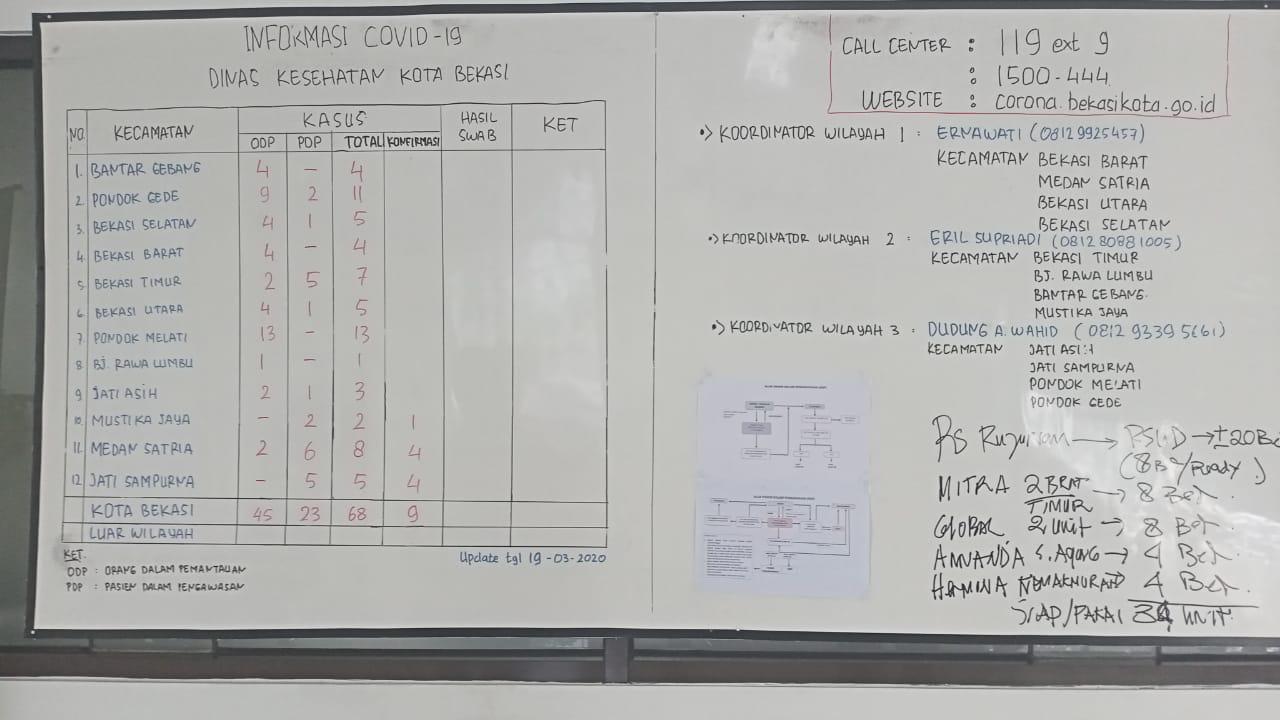 INFORMASI COVID-19
DINAS KESEHATAN KOTA BEKASI
NO. KECAMATAN KASUS HASIL SWAB KET
ODP PDP TOTAL KONFIRMASI
1. BANTAR GEBANG 4 - 4
2 PONDOK GEDE 9 2 11
3. BEKASI SELATAN 4 1 5
4. BEKASI BARAT 4 - 4
5. BEKASI TIMUR 2 5 7
6. BEKASI UTARA 4 1 5
7. PONDOK MELATI 13 - 13
8 BJ. RAWA LUMBU 1 - 1
9 JATI ASIH 2 1 3
10. MUSTIKA JAYA - 2 2 1
11. MEDAN SATRIA 2 6 8 4
12 JATI SAMPURNA - 5 5 4
KOTA BEKASI 45 23 68 9
LUAR WILAYAH
KET.
ODP : ORANG DALAM PEMANTAUAN
PDP : PASIEN DALAM PENGAWASAN
Update tgl 19-03-2020
CALL CENTER : 119 ext 9
: 1500-444
WEBSITE : corona.bekasikota.go.id
•> KOORDINATOR WILAYAH 1 : ERNAWATI (0812 9925457)
KECAMATAN BEKASI BARAT
MEDAN SATRIA
BEKASI UTARA
BEKASI SELATAN
•> KOORDINATOR WILAYAH 2 : ERIL SUPRIADI (0812 80881005)
KECAMATAN BEKASI TIMUR
BJ. RAWA LUMBU
BANTAR GEBANG.
MUSTIKA JAYA
•> KOORDINATOR WILAYAH 3 : DUDUNG A. WAHID (0812 9339 5661)
KECAMATAN JATI ASIH
JATI SAMPURNA
PONDOK MELATI
PONDOK GEDE
RS → RSUD → ±20
MITRA 2 → 8 Bet
TIMUR
GLOBAL 2 Unit → 8 Bet.
AMANDA → 4 Bet
4 Bet.
SIAP/PAKAI UNIT.